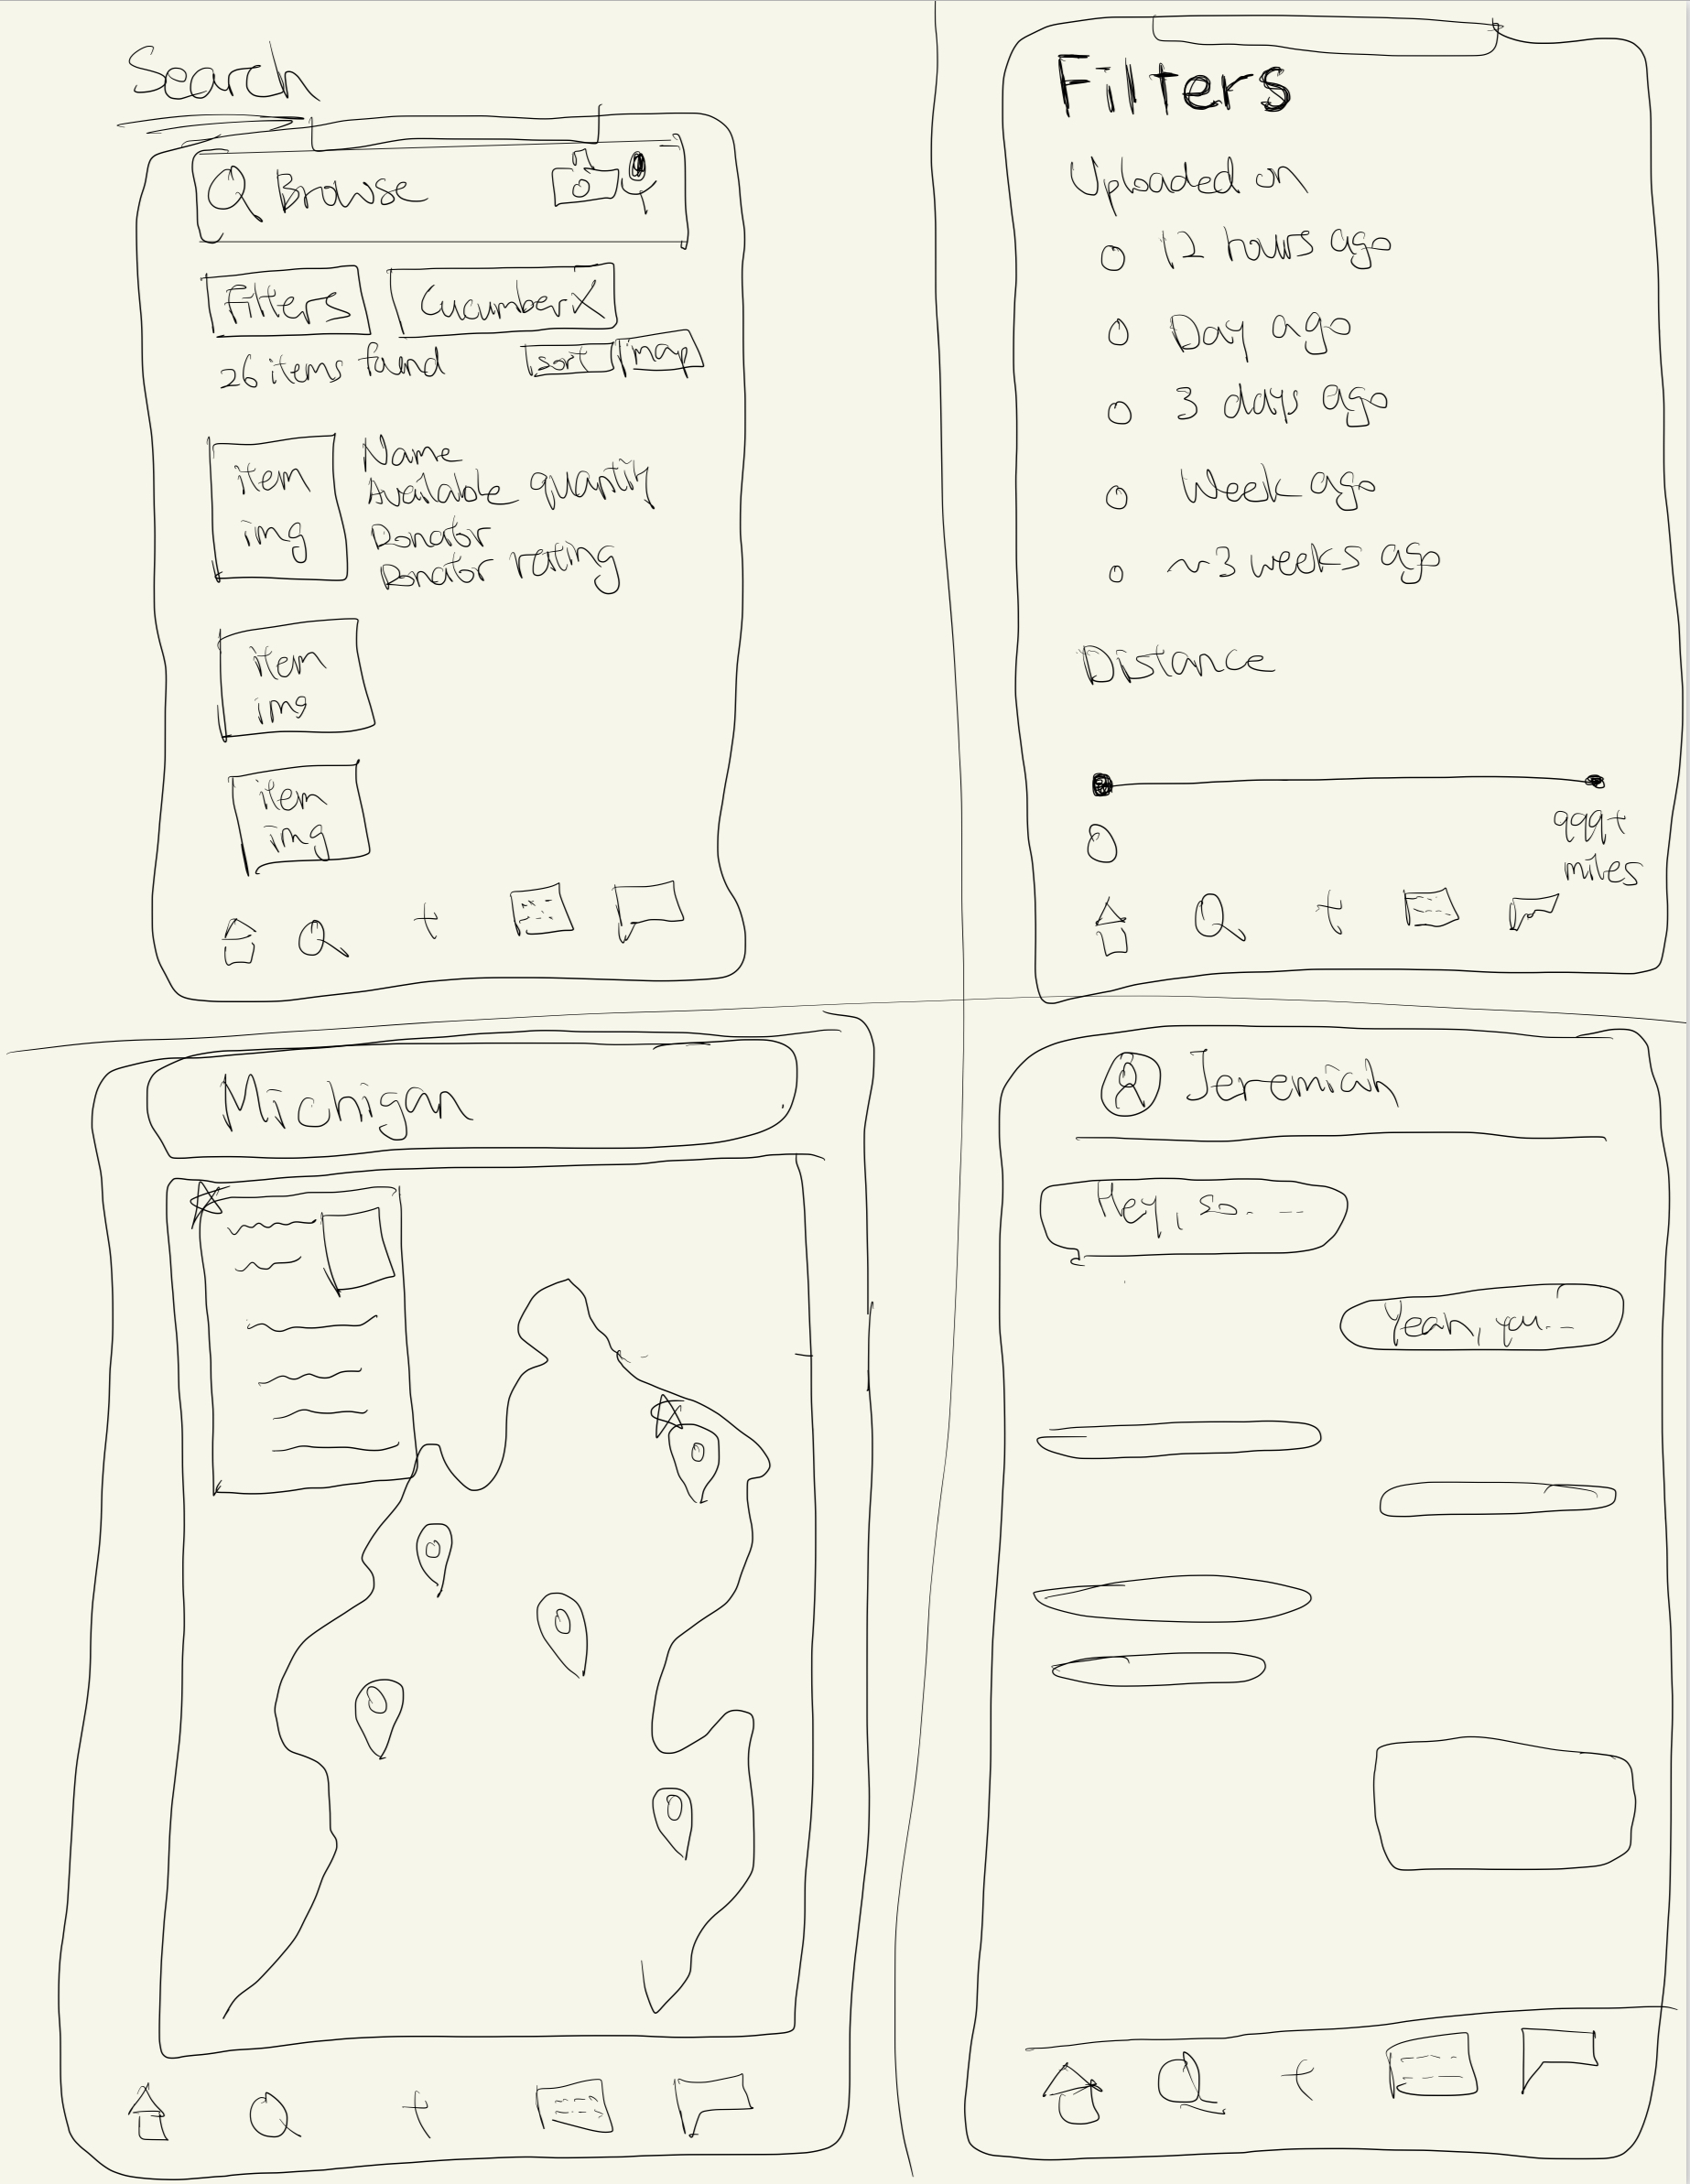 Search
Browse
Filters
Cucumber X
26 items found
sort
map
item
img
Name
Available quantity
Donator
Donator rating
item
img
item
img
Filters
Uploaded on
12 hours ago
Day ago
3 days ago
Week ago
~3 weeks ago
Distance
0
999+
miles
Michigan
Jeremiah
Hey, so. --
Yeah,